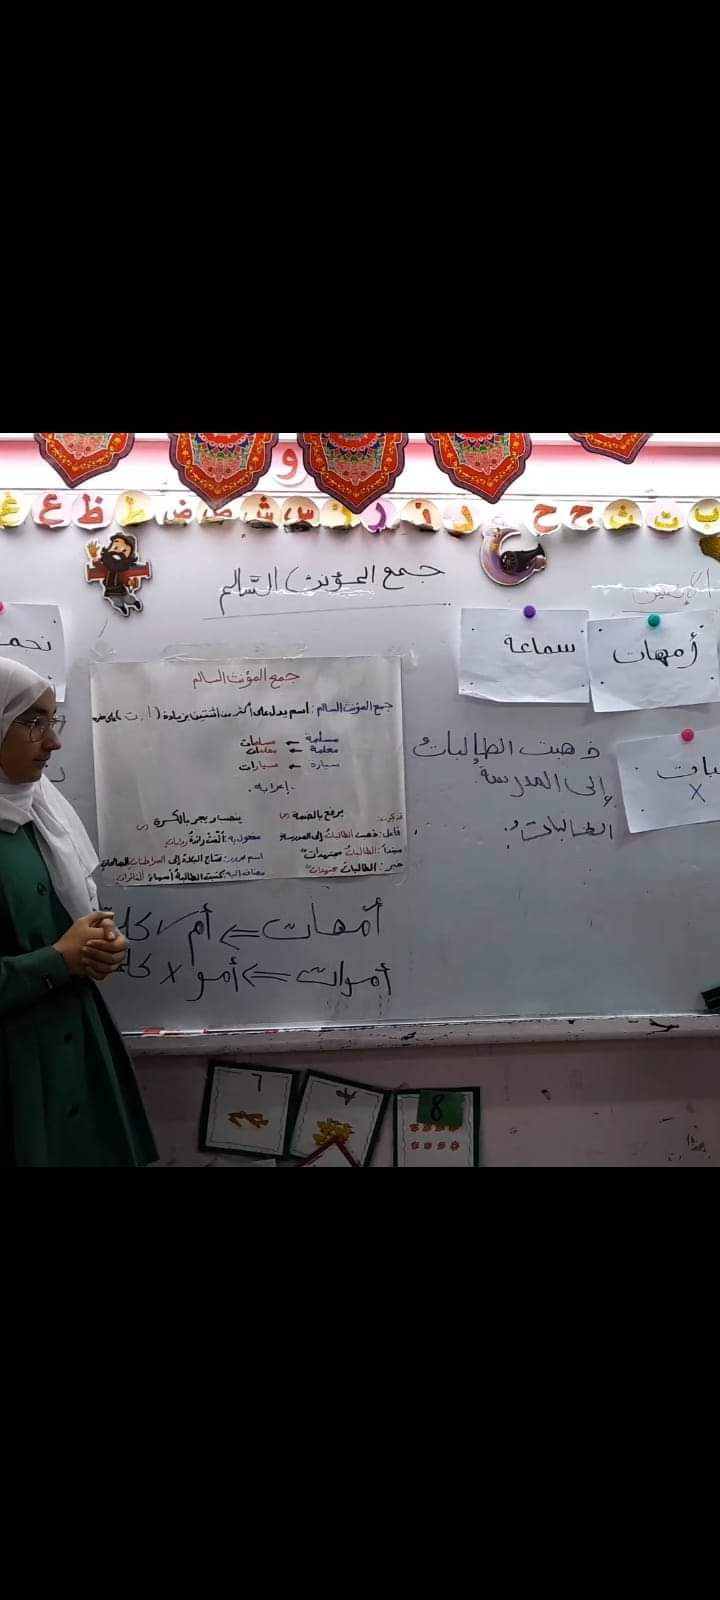 و
ب ت ث ج ح د ذ ر ز س ش ص ض ط ظ ع غ
جمع المؤنث السّالم
الإثنين
أمهات
سماعة
جمع المؤنث السالم
جمع المؤنث السالم: اسم يدل على أكثر من اثنتين بزيادة (ا ـ ت) على
مسلمة ← مسلمات
معلمة ← معلمات
سيارة ← سيارات
إعرابه
يرفع بالضمة
ينصب ويجر بالكسرة
فاعل: ذهبت الطالبات إلى المدرسة
مفعول به: ألفت رائدة
مبتدأ: الطالبات مجتهدات
اسم مجرور: تحتاج البلاد إلى المواطنات الصالحات
خبر: الطالبات مجتهدات
مضاف إليه: كتبت الطالبة أسماء الفائزات
ذهبت الطالباتُ
إلى المدرسةِ
الطالباتُ:
بات
X
أمهات ⇐ أم /
أموات ⇐ أمو X
٦
٧
8